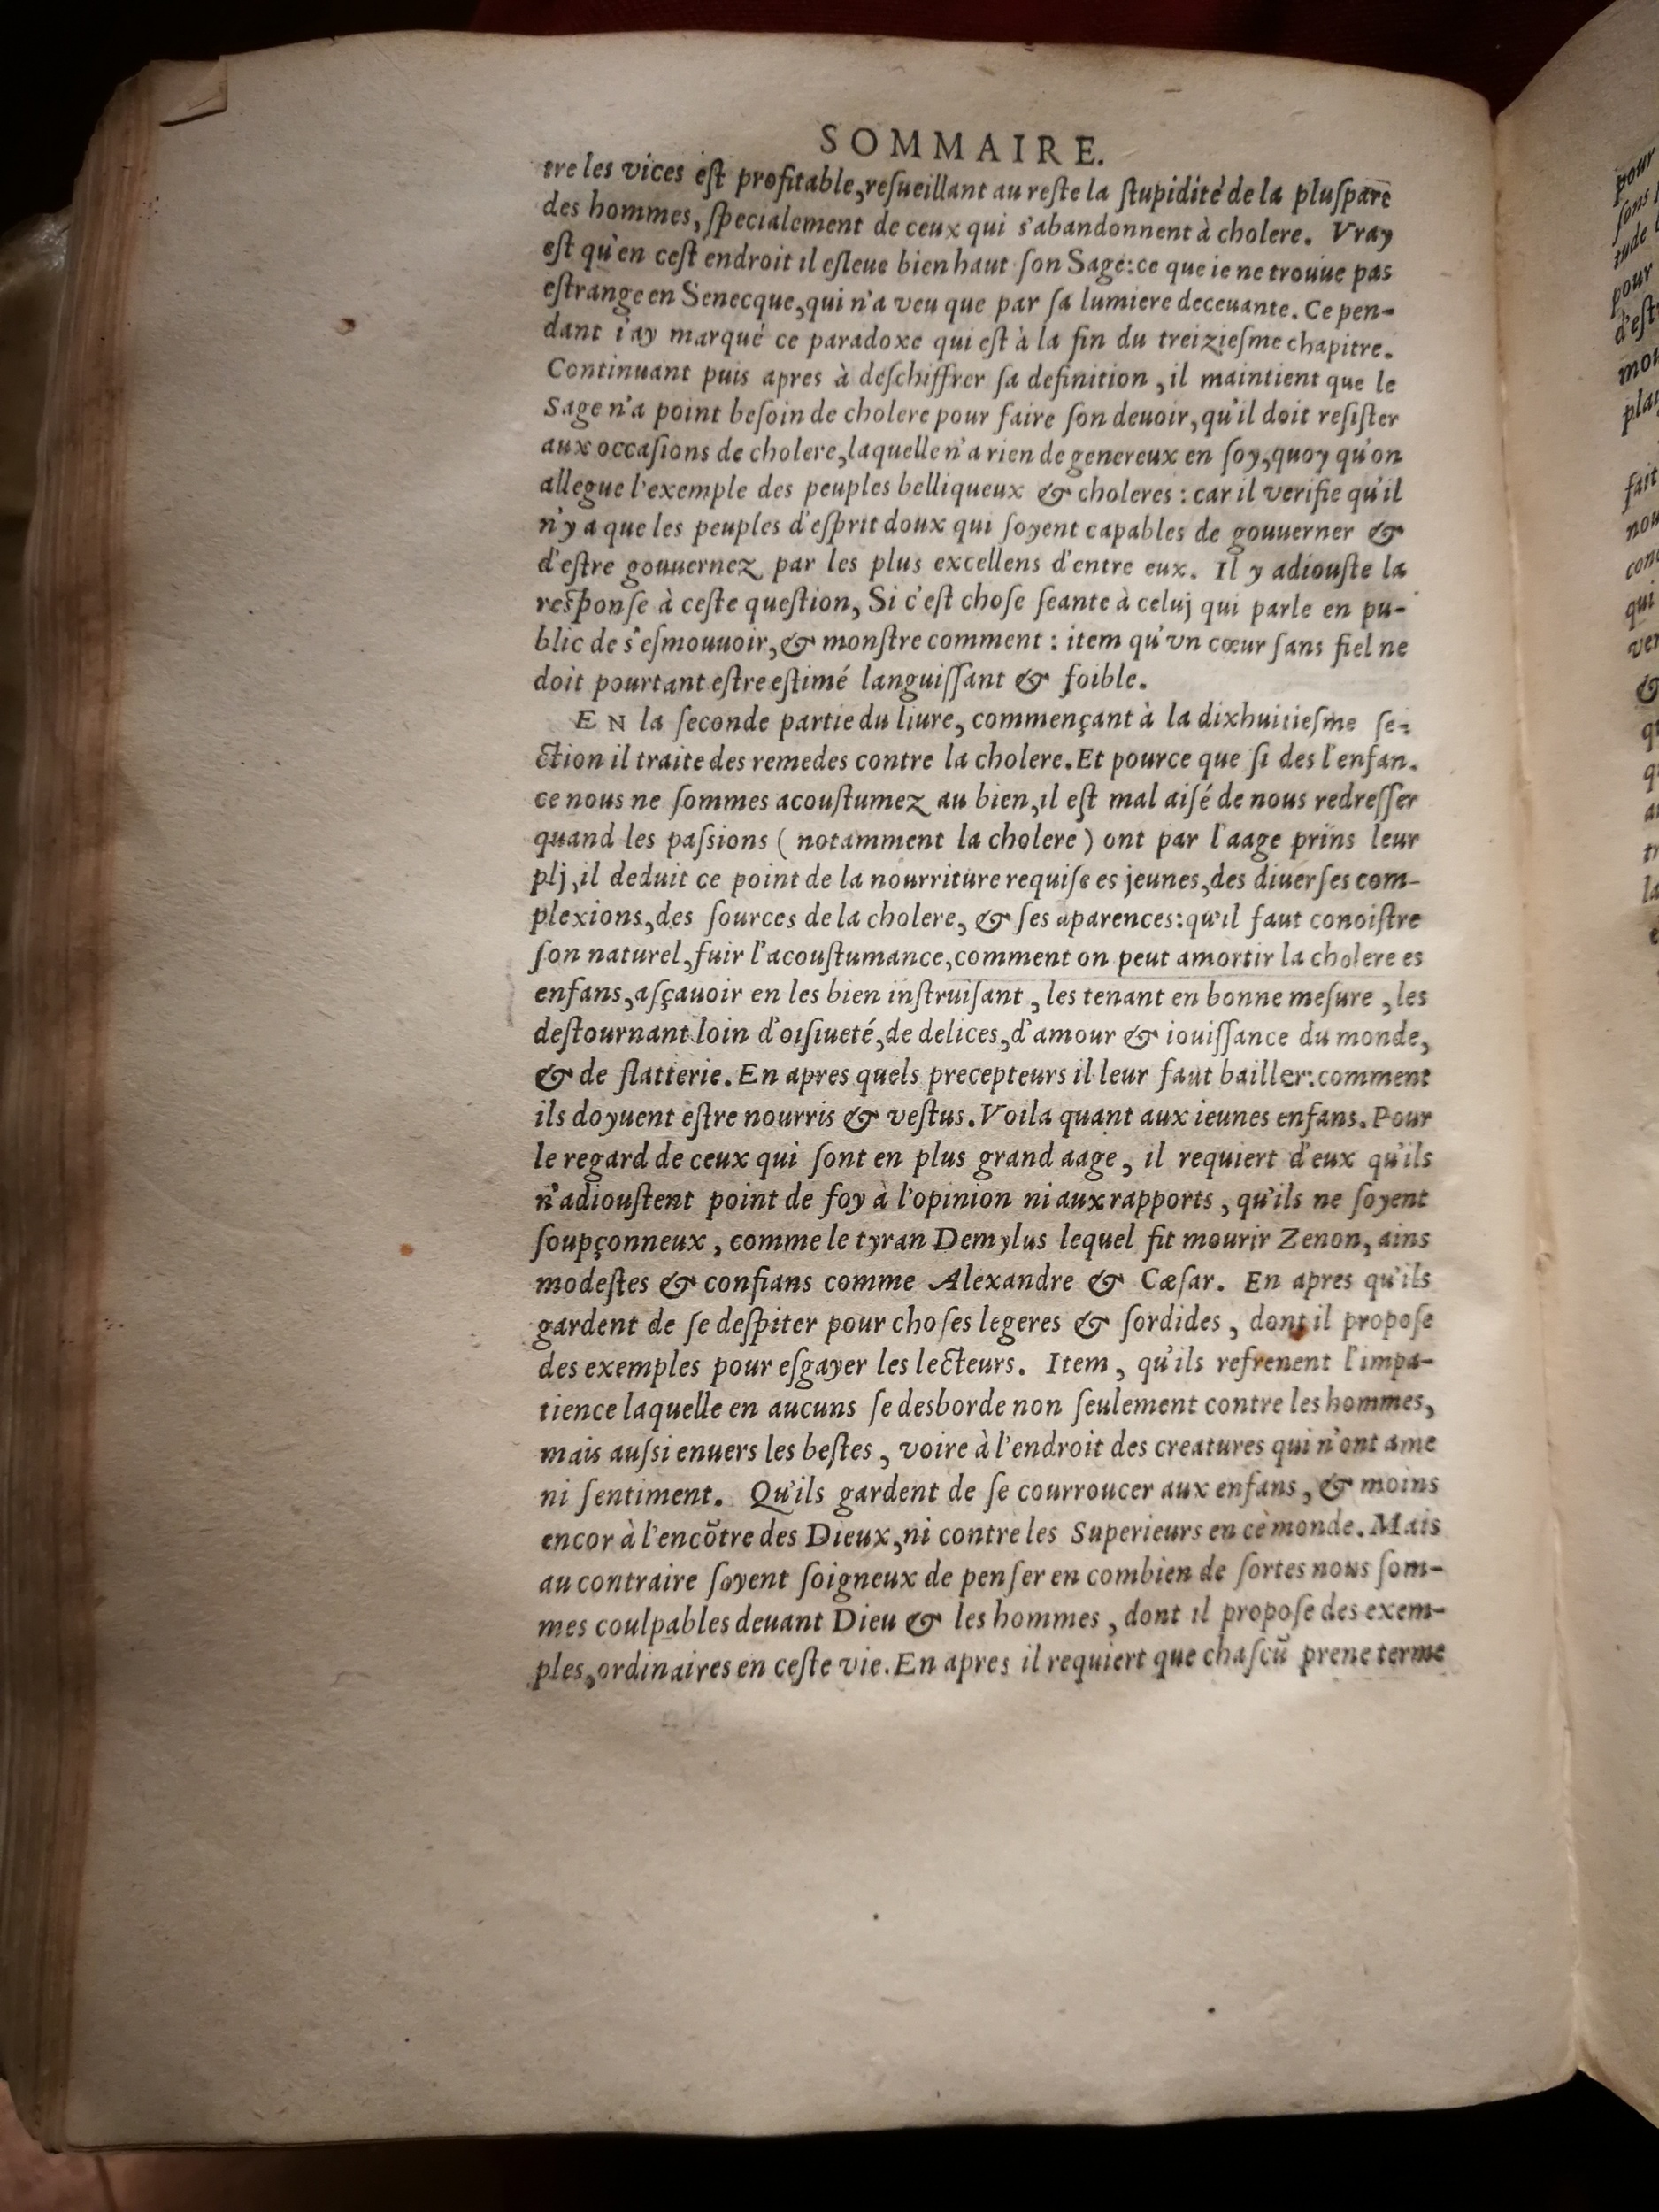 SOMMAIRE.
tre les vices eſt profitable,reſueillant au reſte la ſtupidité de la pluſpart
des hommes, ſpecialement de ceux qui s'abandonnent à cholere. Vray
eſt qu'en ceſt endroit il eſleue bien haut ſon Sage:ce que ie ne trouue pas
eſtrange en Senecque,qui n'a veu que par ſa lumiere deceuante. Ce pen-
dant i'ay marqué ce paradoxe qui eſt à la fin du treizieſme chapitre.
Continuant puis apres à deſchiffrer ſa definition , il maintient que le
Sage n'a point beſoin de cholere pour faire ſon deuoir, qu'il doit reſiſter
aux occaſions de cholere,laquelle n'a rien de genereux en ſoy,quoy qu'on
allegue l'exemple des peuples belliqueux & choleres : car il verifie qu'il
n'y a que les peuples d'eſprit doux qui ſoyent capables de gouuerner &
d'eſtre gouuernez par les plus excellens d'entre eux. Il y adiouſte la
reſponſe à ceſte queſtion, Si c'eſt choſe ſeante à celuj qui parle en pu-
blic de s'eſmouuoir,& monſtre comment : item qu'vn cœur ſans fiel ne
doit pourtant eſtre eſtimé languiſſant & foible.
EN la ſeconde partie du liure, commençant à la dixhuitieſme ſe-
ction il traite des remedes contre la cholere. Et pource que ſi des l'enfan-
ce nous ne ſommes acouſtumez au bien,il eſt mal aiſé de nous redreſſer
quand les paſsions ( notamment la cholere ) ont par l'aage prins leur
plj ,il deduit ce point de la nourriture requiſe es jeunes,des diuerſes com-
plexions,des ſources de la cholere, & ſes aparences:qu'il faut conoiſtre
ſon naturel,fuir l'acouſtumance,comment on peut amortir la cholere es
enfans,aſçauoir en les bien inſtruiſant , les tenant en bonne meſure , les
deſtournant loin d'oiſiueté,de delices,d'amour & iouiſſance du monde,
& de flatterie. En apres quels precepteurs il leur faut bailler:comment
ils doyuent eſtre nourris & veſtus. Voila quant aux ieunes enfans. Pour
le regard de ceux qui ſont en plus grand aage, il requiert d'eux qu'ils
n'adiouſtent point de foy à l'opinion ni aux rapports , qu'ils ne ſoyent
ſoupçonneux , comme le tyran Demylus lequel fit mourir Zenon, ains
modeſtes & confians comme Alexandre & Cæſar. En apres qu'ils
gardent de ſe deſpiter pour choſes legeres & ſordides , dont il propoſe
des exemples pour eſgayer les lecteurs. Item , qu'ils refrenent l'impa-
tience laquelle en aucuns ſe desborde non ſeulement contre les hommes,
mais auſsi enuers les beſtes , voire à l'endroit des creatures qui n'ont ame
ni ſentiment. Qu'ils gardent de ſe courroucer aux enfans , & moins
encor à l'encõtre des Dieux,ni contre les Superieurs en ce monde. Mais
au contraire ſoyent ſoigneux de penſer en combien de ſortes nous ſom-
mes coulpables deuant Dieu & les hommes , dont il propoſe des exem-
ples,ordinaires en ceſte vie. En apres il requiert que chaſcũ prene terme
pour
ſons
tude
pour
d'eſt
mou
plai
fait
nou
con
qui
ver
&